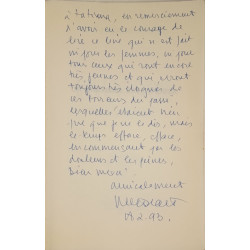 à Tatiana, en remerciement
d'avoir eu le courage de
lire ce livre qui n'est fait
ni pour les femmes, ni pour
tous ceux qui sont encore
très jeunes et qui seront
toujours très éloignés de
ces terreurs du passé,
lesquelles étaient
que pour le dis, mais
le temps efface, efface,
en commençant par les
douleurs et les peines,
Dieu merci!
amicalement
19.2.93.